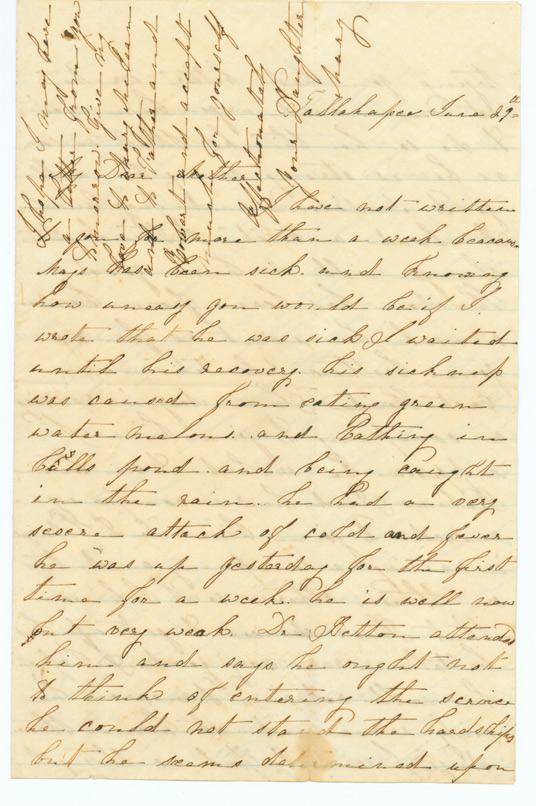 Tallahapee June 29th
My Dear Mother
I have not written
you for more than a week because
has been sick and knowing
how uneasy you would be if I
wrote that he was sick I waited
until his recovery. his sickness
was caused from eating green
water melons and bathing in
pond and being caught
in the rain. he had a very
severe attack of cold and fever
he was up yesterday for the first
time for a week. he is well now
but very weak. Dr attended
him and says he ought not
to think of entering the service
he could not stand the hardships
but he seems determined upon
I hope I may have
a letter from you
tomorrow. Give my
love to
and to Father and
Robert and accept
much for yourself
Affectionately
your daughter
Mary